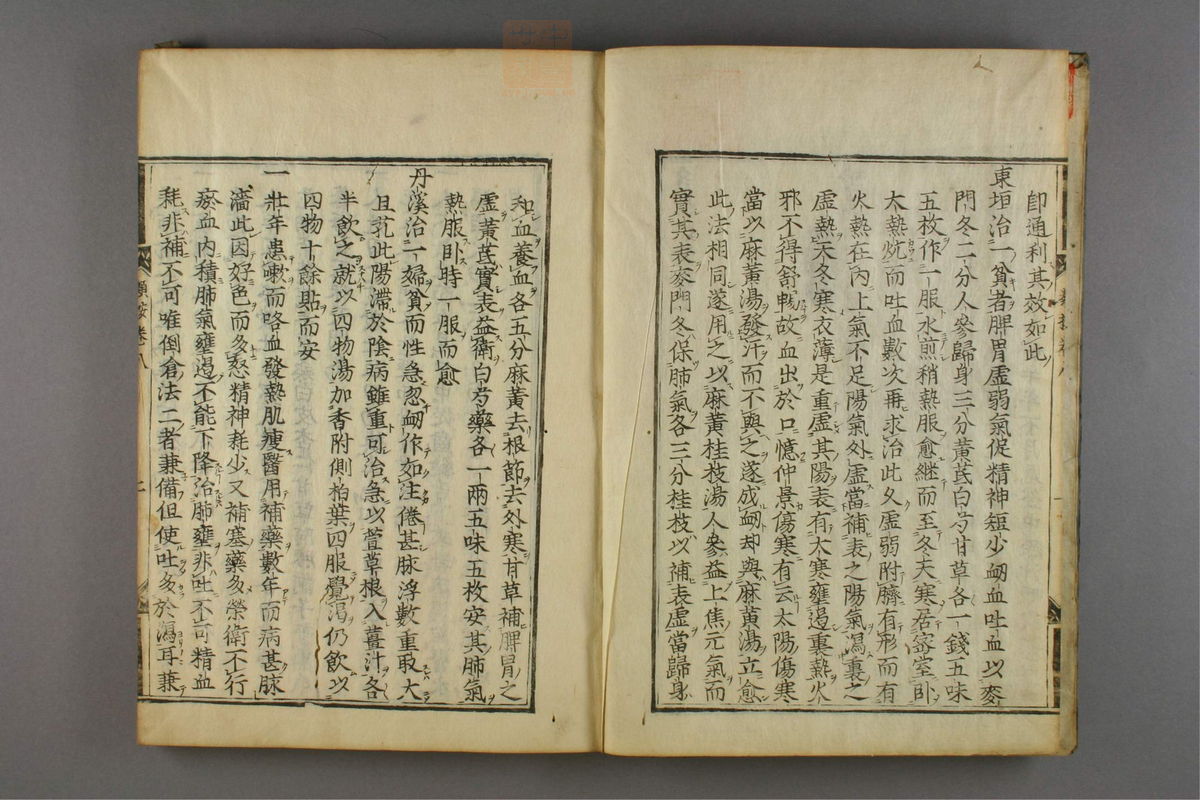 即通利其效如此
東垣治一貧者脾胃虛弱氣促精神短少衂血吐血以麥
門冬二分人參歸身三分黃芪白芍甘草各一錢五味
五枚作一服水煎稍熱服愈繼而至冬天寒居密室臥
大熱炕而吐血數次再求治此久虛弱附臍有形而有
火熱在內上氣不足陽氣外虛當補表之陽氣瀉裏之
虛熱夫冬寒衣薄是重虛其陽表有大寒壅遏裏熱火
邪不得舒暢故血出於口憶仲景傷寒有云太陽傷寒
當以麻黃湯發汗而不與之遂成衂却與麻黃湯立愈
此法相同遂用之以麻黃桂枝湯人參益上焦元氣而
實其表麥門冬保肺氣各三分桂枝以補表虛當歸身
和血養血各五分麻黃去根節去外寒甘草補脾胃之
虛黃芪實表益衛白芍藥各一兩五味五枚安其肺氣
熱服臥時一服而愈
丹溪治一婦貧而性急忽衂作如注倦甚脉浮數重取大
且芤此陽滯於陰病雖重可治急以萱草根入薑汁各
半飲之就以四物湯加香附側柏葉四服覺渴仍飲以
四物十餘貼而安
一壯年患嗽而咯血發熱肌瘦醫用補藥數年而病甚脉
濇此因好色而多怒精神耗少又補塞藥多榮衛不行
瘀血內積肺氣壅遏不能下降治肺壅非吐不可精血
耗非補不可唯倒倉法二者兼備但使吐多於瀉耳兼
類按卷八